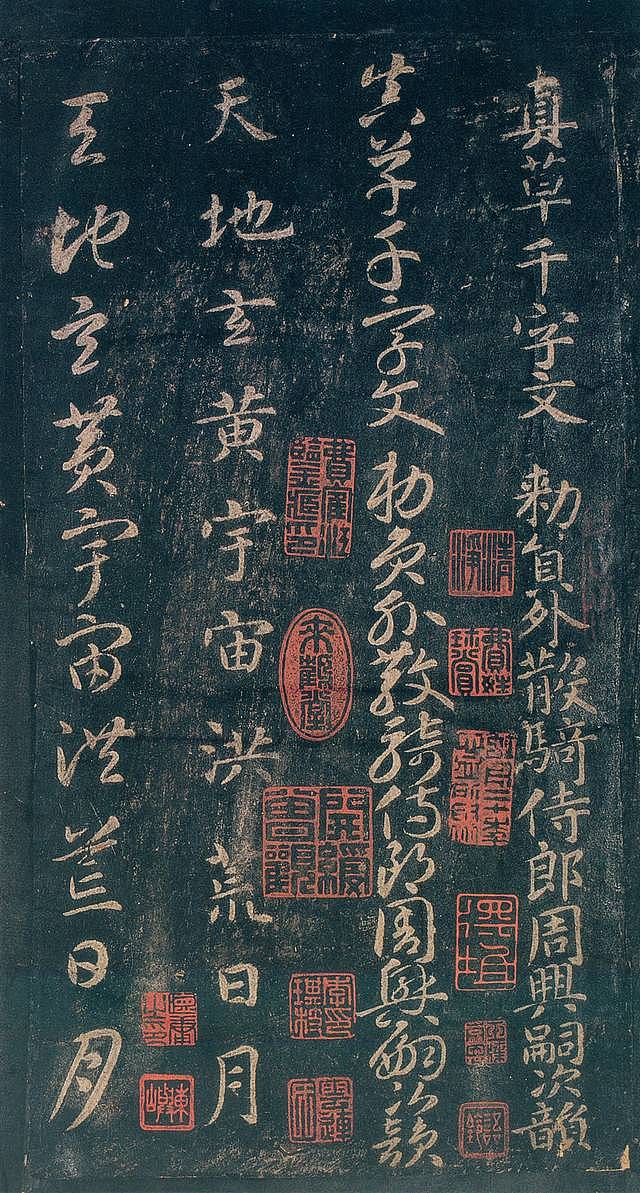 真草千字文 勅員外散騎侍郎周興嗣次韻
真草千字文 勅員外散騎侍郎周興嗣次韻
天地玄黃宇宙洪荒日月
天地玄黃宇宙洪荒日月
來觀堂
清淨